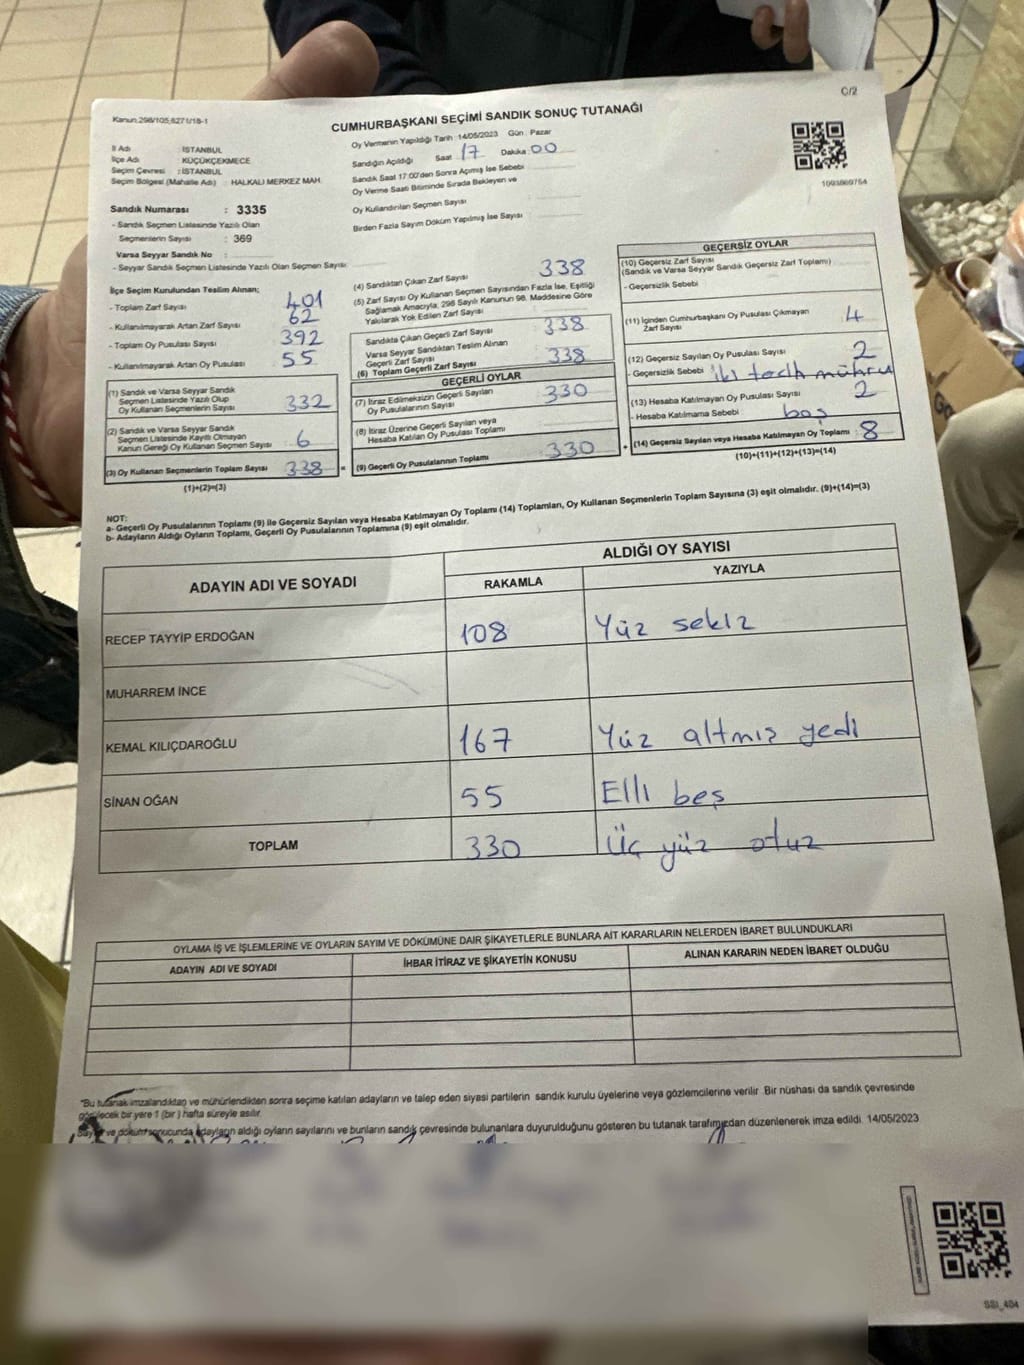 Kanun.298/105,6271/18-1
C/2
CUMHURBAŞKANI SEÇİMİ SANDIK SONUÇ TUTANAĞI
İl Adı : İSTANBUL
İlçe Adı : KÜÇÜKÇEKMECE
Seçim Çevresi : İSTANBUL
Seçim Bölgesi (Mahalle Adı) : HALKALI MERKEZ MAH.
Oy Vermenin Yapıldığı Tarih :14/05/2023 Gün : Pazar
Sandığın Açıldığı Saat 17 Dakika : 00
Sandık Saat 17:00'den Sonra Açılmış İse Sebebi
Oy Verme Saati Bitiminde Sırada Bekleyen ve
Oy Kullandırılan Seçmen Sayısı
Birden Fazla Sayım Döküm Yapılmış İse Sayısı
1093869764
Sandık Numarası : 3335
- Sandık Seçmen Listesinde Yazılı Olan
Seçmenlerin Sayısı : 369
Varsa Seyyar Sandık No :
- Seyyar Sandık Seçmen Listesinde Yazılı Olan Seçmen Sayısı:
İlçe Seçim Kurulundan Teslim Alınan;
- Toplam Zarf Sayısı 401
- Kullanılmayarak Artan Zarf Sayısı 62
- Toplam Oy Pusulası Sayısı 392
- Kullanılmayarak Artan Oy Pusulası 55
(1) Sandık ve Varsa Seyyar Sandık
Seçmen Listesinde Yazılı Olup
Oy Kullanan Seçmenlerin Sayısı 332
(2) Sandık ve Varsa Seyyar Sandık
Seçmen Listesinde Kayıtlı Olmayan
Kanun Gereği Oy Kullanan Seçmen Sayısı 6
(3) Oy Kullanan Seçmenlerin Toplam Sayısı 338 =
(1)+(2)=(3)
(4) Sandıktan Çıkan Zarf Sayısı 338
(5) Zarf Sayısı Oy Kullanan Seçmen Sayısından Fazla İse, Eşitliği
Sağlamak Amacıyla, 298 Sayılı Kanunun 98. Maddesine Göre
Yakılarak Yok Edilen Zarf Sayısı
Sandıkta Çıkan Geçerli Zarf Sayısı 338
Varsa Seyyar Sandıktan Teslim Alınan
Geçerli Zarf Sayısı
(6) Toplam Geçerli Zarf Sayısı 338
GEÇERLİ OYLAR
(7) İtiraz Edilmeksizin Geçerli Sayılan
Oy Pusulalarının Sayısı 330
(8) İtiraz Üzerine Geçerli Sayılan veya
Hesaba Katılan Oy Pusulası Toplamı
(9) Geçerli Oy Pusulalarının Toplamı 330 +
GEÇERSİZ OYLAR
(10) Geçersiz Zarf Sayısı
(Sandık ve Varsa Seyyar Sandık Geçersiz Zarf Toplamı)
- Geçersizlik Sebebi
(11) İçinden Cumhurbaşkanı Oy Pusulası Çıkmayan
Zarf Sayısı 4
(12) Geçersiz Sayılan Oy Pusulası Sayısı 2
- Geçersizlik Sebebi iki tercih mührü
(13) Hesaba Katılmayan Oy Pusulası Sayısı 2
- Hesaba Katılmama Sebebi boş
(14) Geçersiz Sayılan veya Hesaba Katılmayan Oy Toplamı 8
(10)+(11)+(12)+(13)=(14)
NOT:
a- Geçerli Oy Pusulalarının Toplamı (9) ile Geçersiz Sayılan veya Hesaba Katılmayan Oy Toplamı (14) Toplamları, Oy Kullanan Seçmenlerin Toplam Sayısına (3) eşit olmalıdır. (9)+(14)=(3)
b- Adayların Aldığı Oyların Toplamı, Geçerli Oy Pusulalarının Toplamına (9) eşit olmalıdır.
ADAYIN ADI VE SOYADI
ALDIĞI OY SAYISI
RAKAMLA YAZIYLA
RECEP TAYYİP ERDOĞAN 108 Yüz sekiz
MUHARREM İNCE
KEMAL KILIÇDAROĞLU 167 Yüz altmış yedi
SİNAN OĞAN 55 Elli beş
TOPLAM 330 Üç yüz otuz
OYLAMA İŞ VE İŞLEMLERİNE VE OYLARIN SAYIM VE DÖKÜMÜNE DAİR ŞİKAYETLERLE BUNLARA AİT KARARLARIN NELERDEN İBARET BULUNDUKLARI
ADAYIN ADI VE SOYADI İHBAR İTİRAZ VE ŞİKAYETİN KONUSU ALINAN KARARIN NEDEN İBARET OLDUĞU
"Bu tutanak imzalandıktan ve mühürlendikten sonra seçime katılan adayların ve talep eden siyasi partilerin sandık kurulu üyelerine veya gözlemcilerine verilir. Bir nüshası da sandık çevresinde
görülecek bir yere 1 (bir) hafta süreyle asılır.
Sayım ve döküm sonucunda adayların aldığı oyların sayılarını ve bunların sandık çevresinde bulunanlara duyurulduğunu gösteren bu tutanak tarafımızdan düzenlenerek imza edildi. 14/05/2023
SSI_404